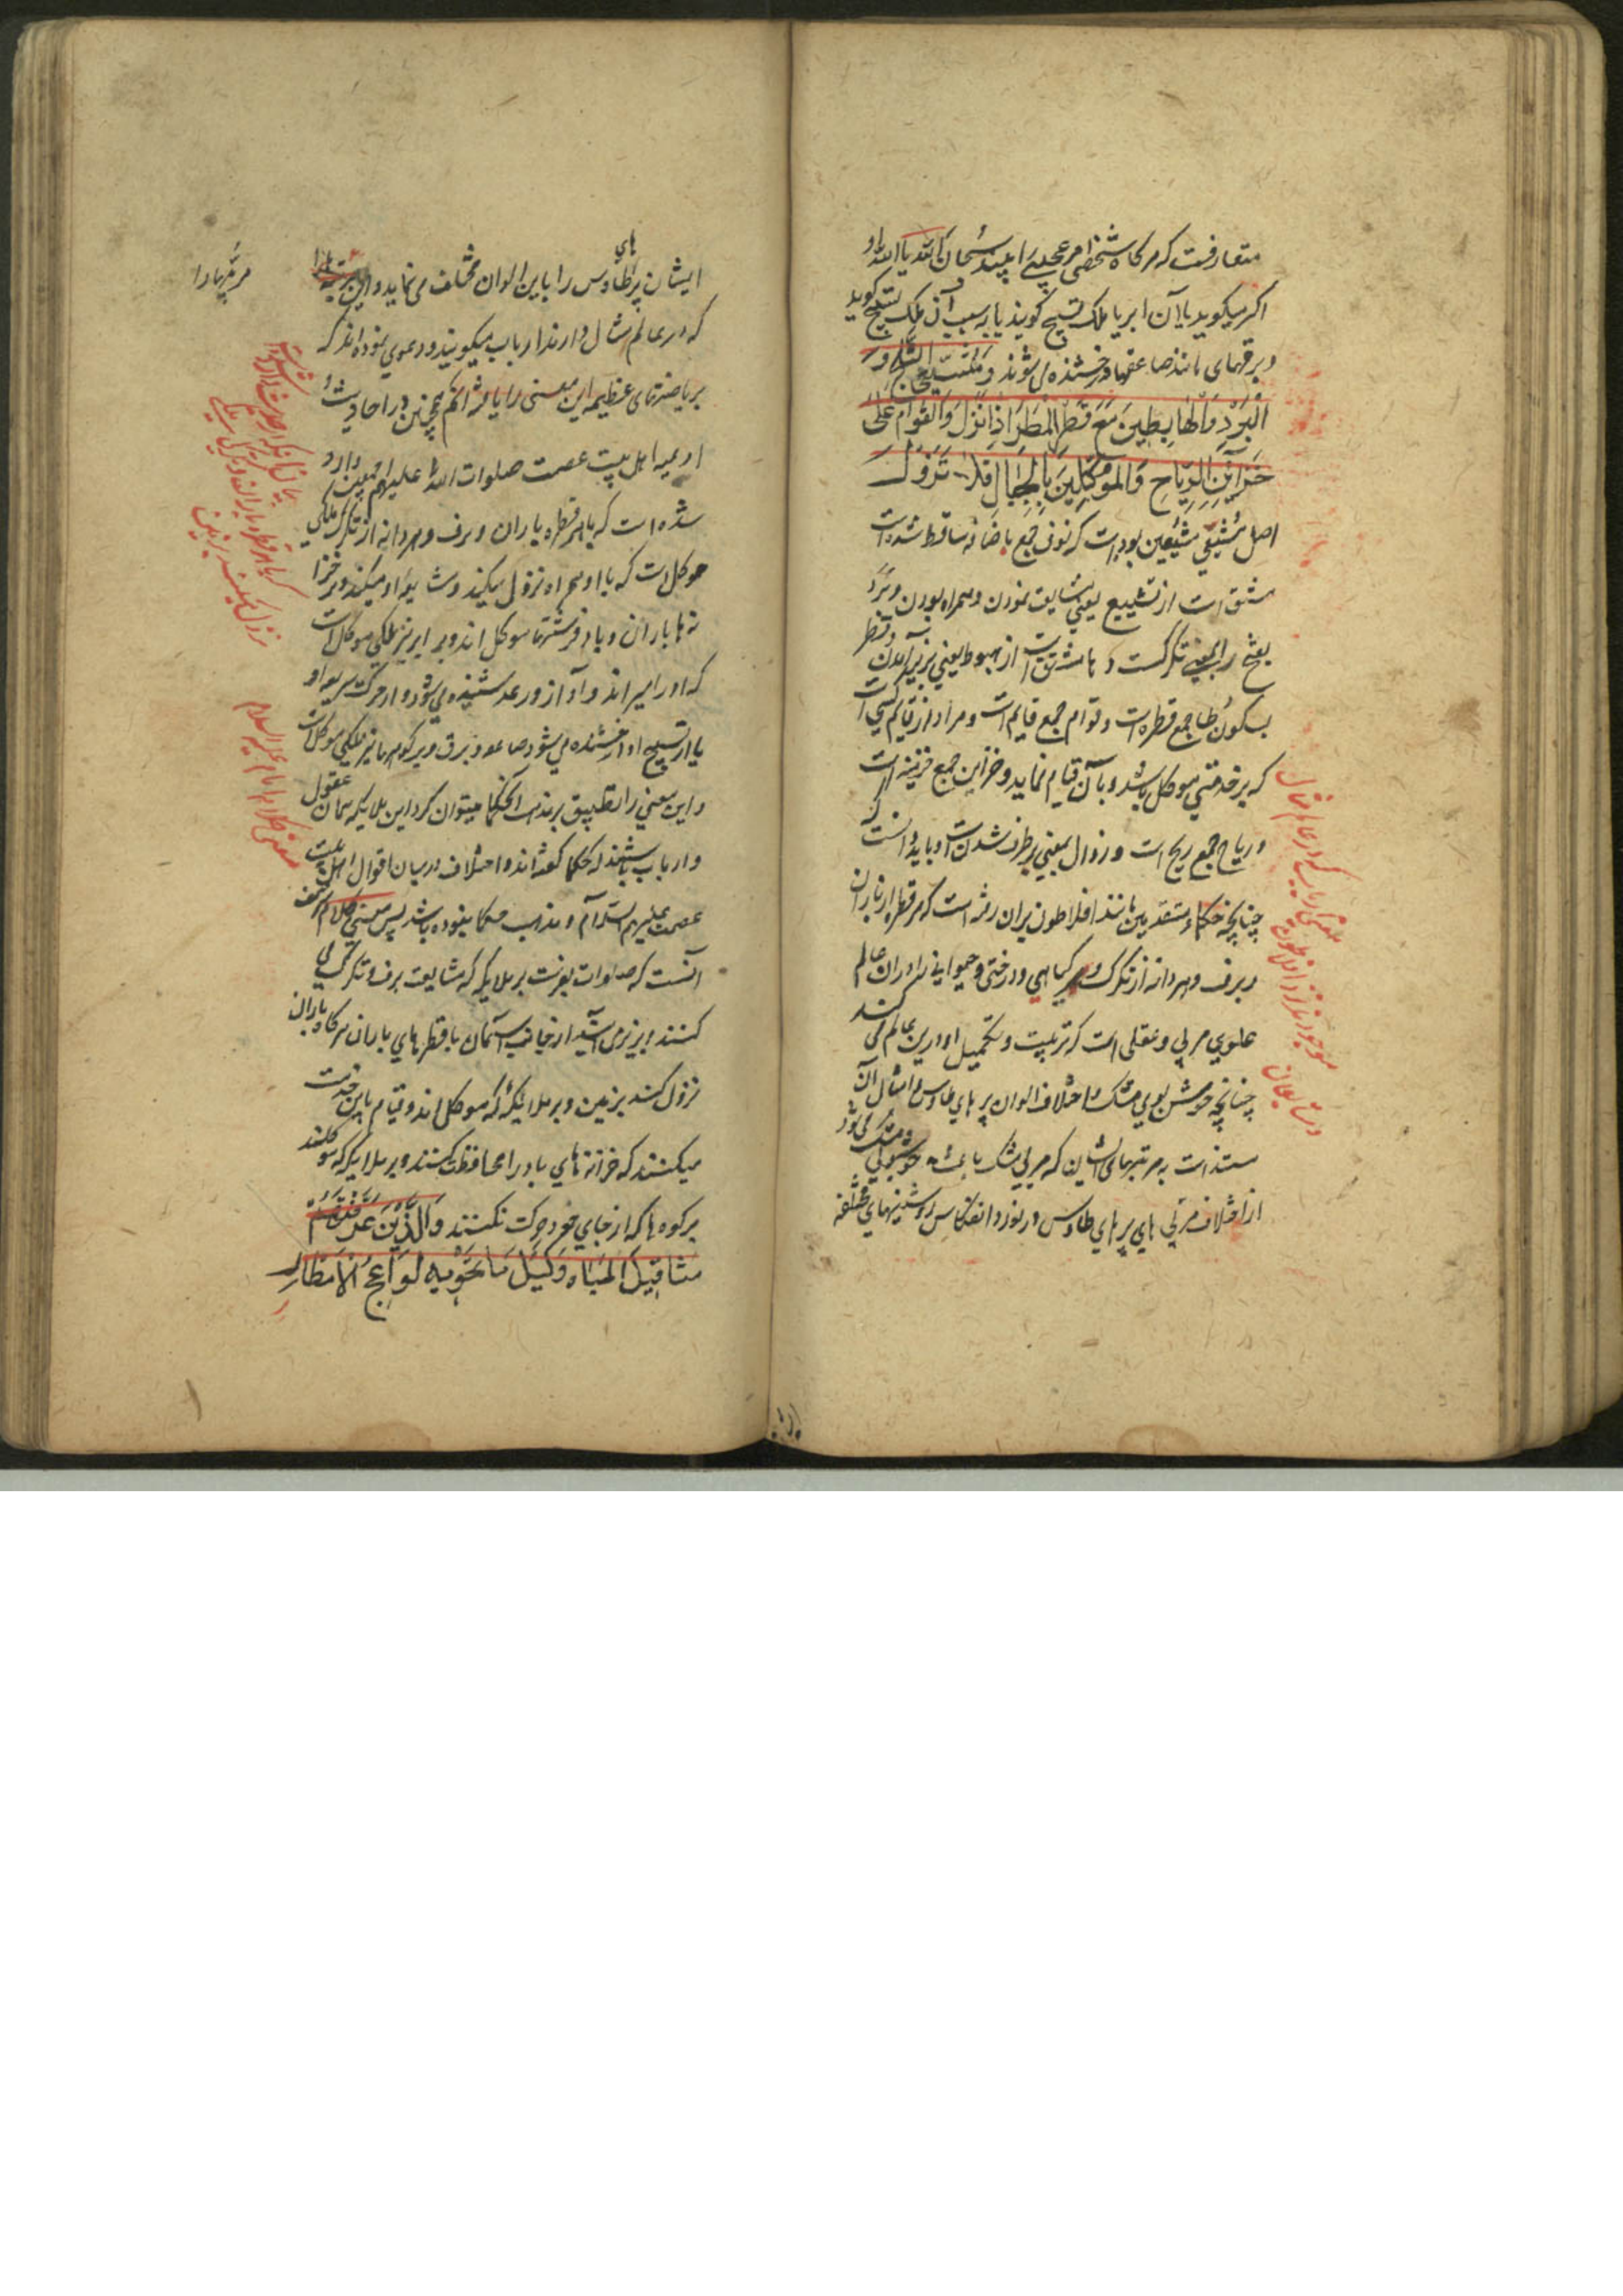 متعارفست که هرکاه شخصی امر عجیبی ببیند سبحان الله یا الله
اکبر میکوید یا آن ابر یا ملک تسبیح کویند یا بسبب آن ملک تسبیح کوید
و برقهای مانند صاعقها درخشنده می شوند وَمُشَیِّعِی الثَّلْجِ وَ
الْبَرَدِ وَالْهابِطِینَ مَعَ قَطْرِ الْمَطَرِ اِذا نَزَلَ وَالْقُوّامِ عَلی
خَزائِنِ الرِّیاحِ وَالْمُوَکَّلِینَ بِالْجِبالِ فَلا تَزُولُ
اصل مشیعی مشیعین بوده است که نون جمع باضافه ساقط شده است
مشتق است از تشییع یعنی مشایعت نمودن و همراه بودن و برد
بفتح را بمعنی تکرکست و هابط مشتق است از هبوط یعنی بزیر آمدن و قطر
بسکون طا جمع قطره است و قوام جمع قایم است و مراد از قایم کسی است
که بر خدمتی موکل باشد و بآن قیام نماید و خزاین جمع خزینه است
و ریاح جمع ریح است و زوال بمعنی برطرف شدن است و باید دانست که
چنانچه حکماء متقدمین مانند افلاطون بران رفته است که هر قطره از باران
و برف و هر دانه از تکرک و هر کیاهی و درختی و حیوانی را در ان عالم
علوی مربی و عقلی است که تربیت و تکمیل او درین عالم می کند
چنانچه خوشبویی مشک و اختلاف الوان پرهای طاوس و امثال آن
مستند است به مرتبهای ایشان که مربی مشک باعث خوشبویی مشک می شود
از اختلاف مربی های پرهای طاوس در نور و انعکاس روشنیهای مختلفه
ملکی را باب که در عالم مثال
موجودند نزد افلاطون
ایشان پرهای طاوس را باین الوان مختلف می نماید و این
مرتبهارا
که در عالم مثال دارند ارباب میکویند و دعوی نموده اند که
بریاضتهای عظیمه این معنی را یافته انکم همچنین در احادیث و
ادعیه اهل بیت عصمت صلوات الله علیهم اجمعین وارد
شده است که با هر قطره باران و برف و هر دانه از تکرک ملکی
موکل است که با او همراه نزول میکند و مشایعه او میکند و بر خزا
نه ها باران و باد فرشتها موکل اند و بر ابر نیز ملکی موکل است
که او را میراند و آواز رعد شنیده می شود و از حرکت سریع او
یا از تسبیح او درخشنده می شود صاعقه و برق و بر کوهها نیز ملکی موکل است
و این معنی را تطبیق بر مذهب حکما میتوان کرد این ملایکه همان عقول
و ارباب باشند که حکما کفته اند و اختلاف در میان اقوال اهل بیت
عصمت علیهم السلام و مذهب حکما نبوده باشد پس معنی کلام شریف
آنست که صلوات بفرست بر ملایکه که مشایعت برف و تکرک می
کنند و بزیر می آیند از جانب آسمان با قطرهای باران هرکاه باران
نزول کند بزمین و بر ملائکه که موکل اند و قیام باین خدمت
میکنند که خزانه های باد را محافظت کنند و بر ملایکه که موکلند
بر کوه ها که از جای خود حرکت نکنند وَالَّذِینَ عَرَّفْتَهُمْ
مَثاقِیلَ الْمِیاهِ وَکَیْلَ ما تَحْوِیهِ لَواعِجُ الْاَمْطارِ
معنی کلام امام علیه السلام